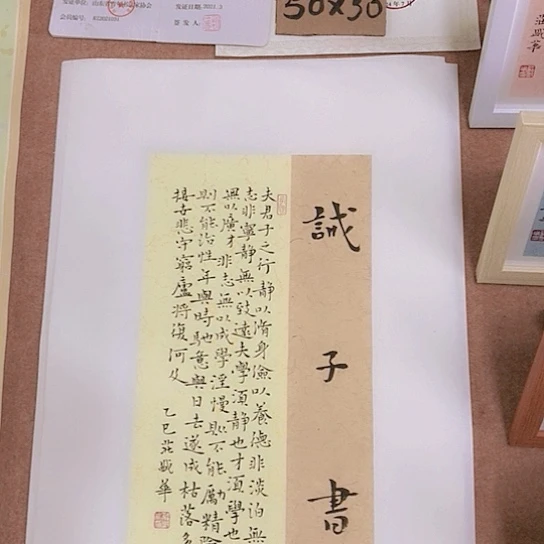 发证日期:2021.3
会员编号:
签发人:
50×30
誡子書
夫君子之行靜以脩身儉以養德非淡泊無
志非寧靜無以致遠夫學須靜也才須學也
無以廣才非志無以成學淫慢則不能勵精險
則不能治性年與時馳意與日去遂成枯落多
接世悲守窮廬將復何及
乙巳莊毓華
莊毓華